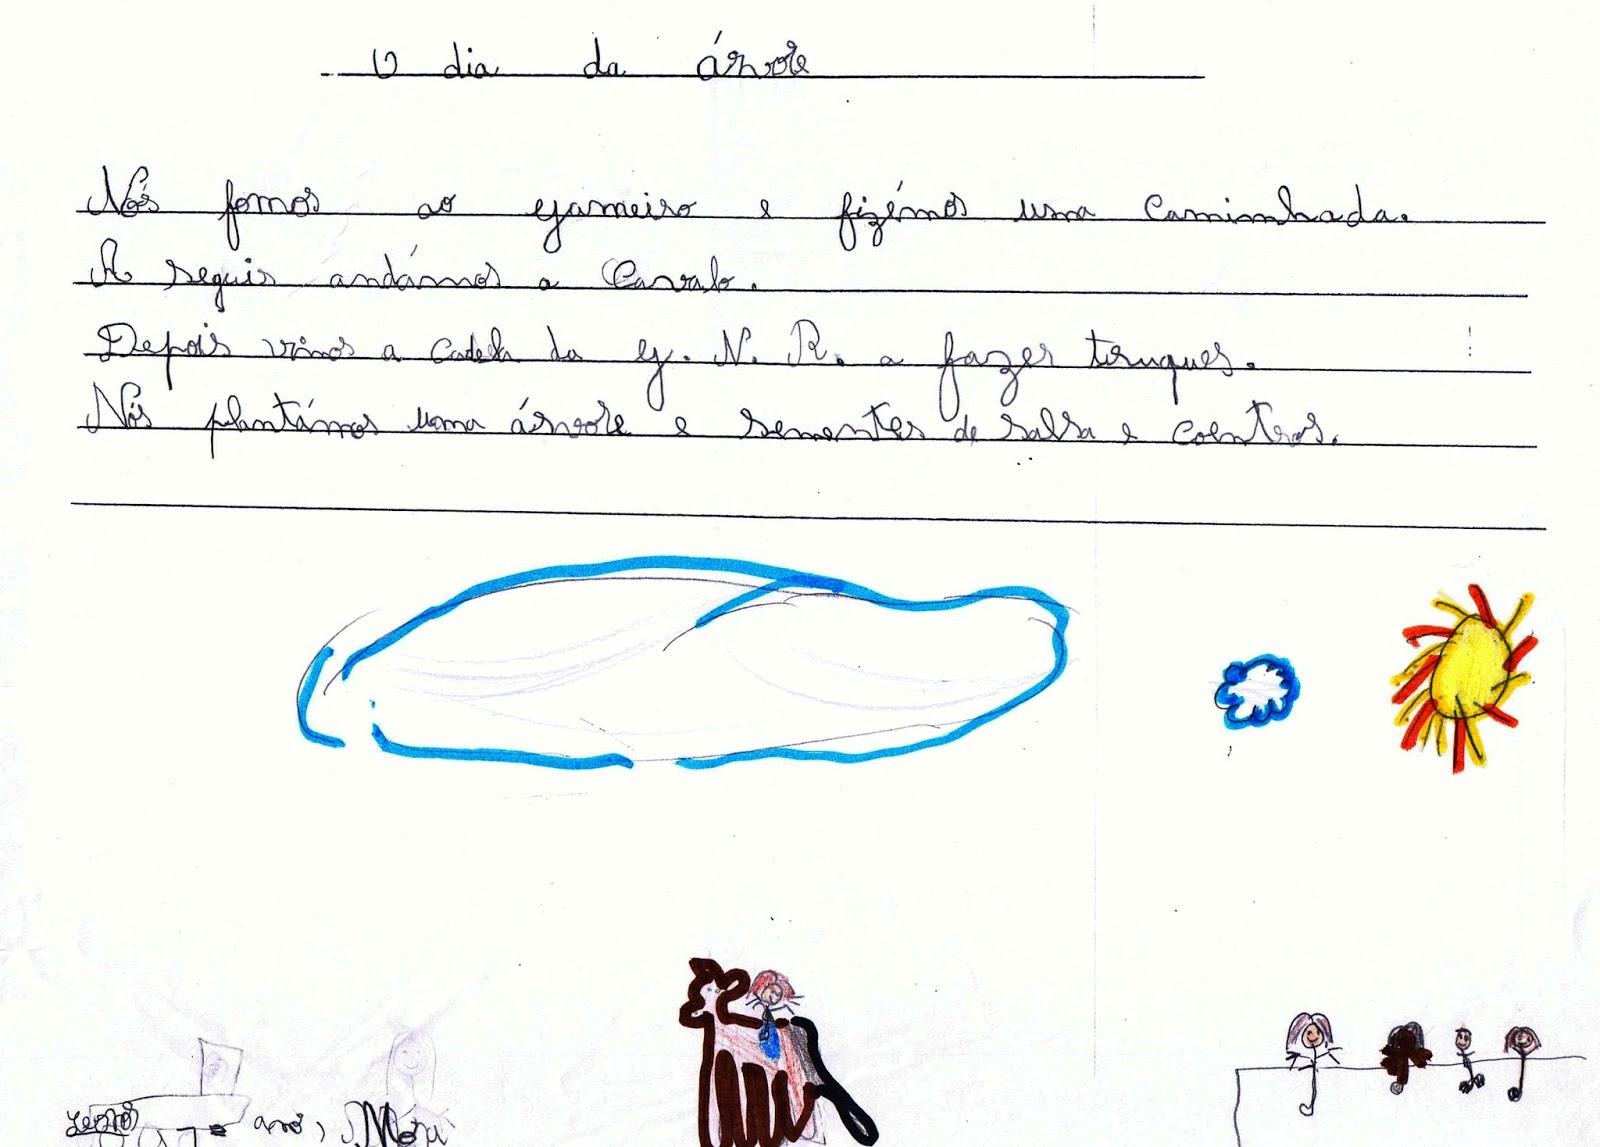 O dia da árvore
Nós fomos ao gameiro e fizémos uma caminhada.
A seguir andámos a cavalo.
Depois vimos a cadela da g. N. R. a fazer truques.
Nós plantámos uma árvore e sementes de salsa e coentros.
anos, Móra